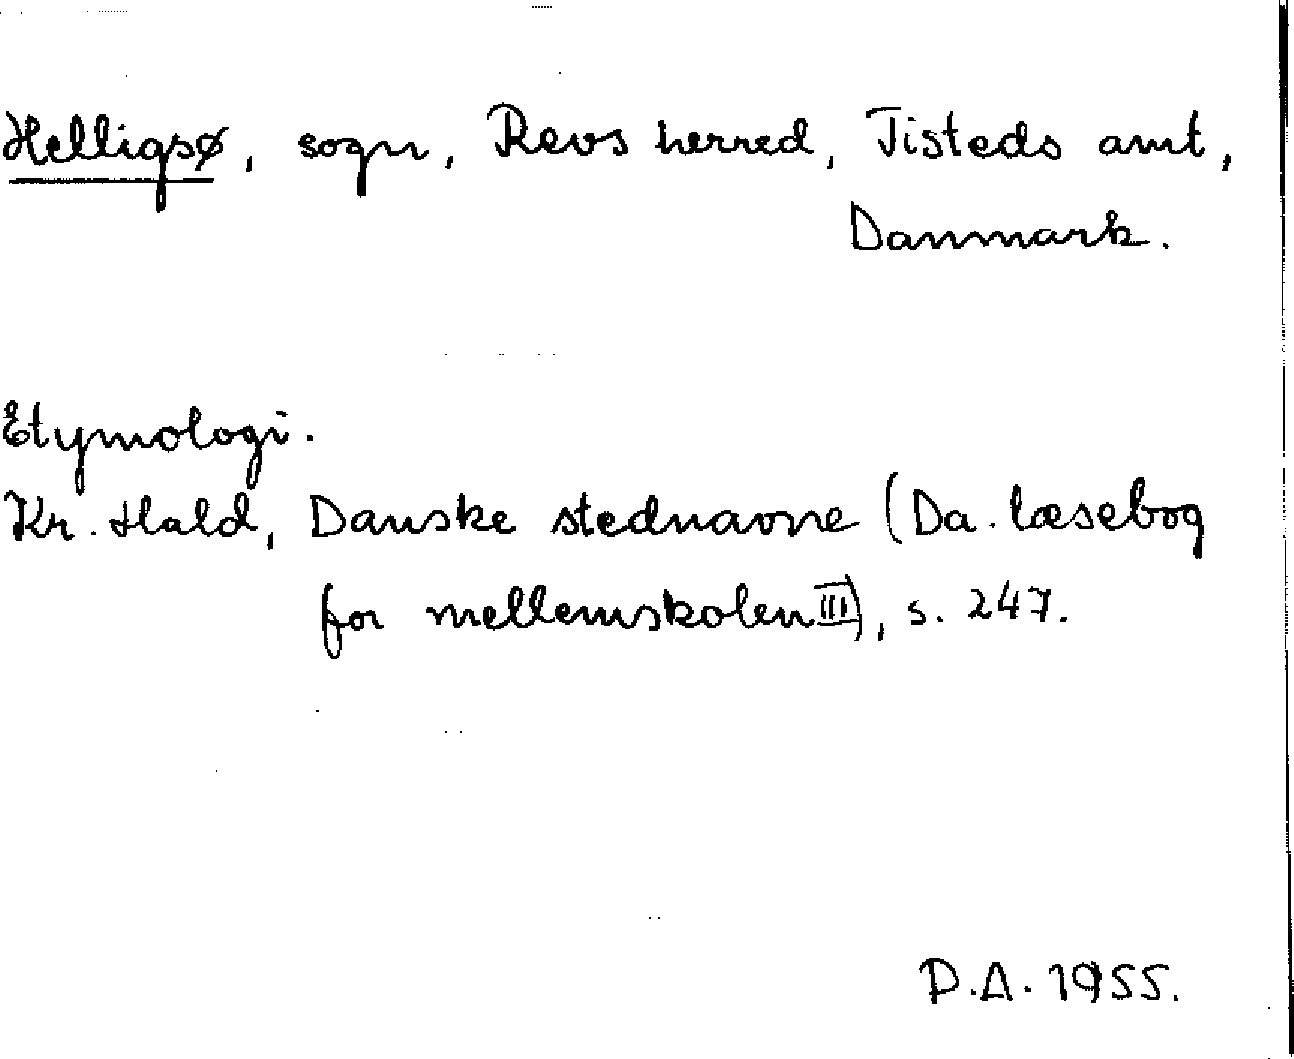 Helligsø, sogn, Revs herred, Tisteds amt,
Danmark.
Etymologi.
Kr. Hald, Danske stednavne (Da. læsebog
for mellemskolen III), s. 247.
P.A. 1955.